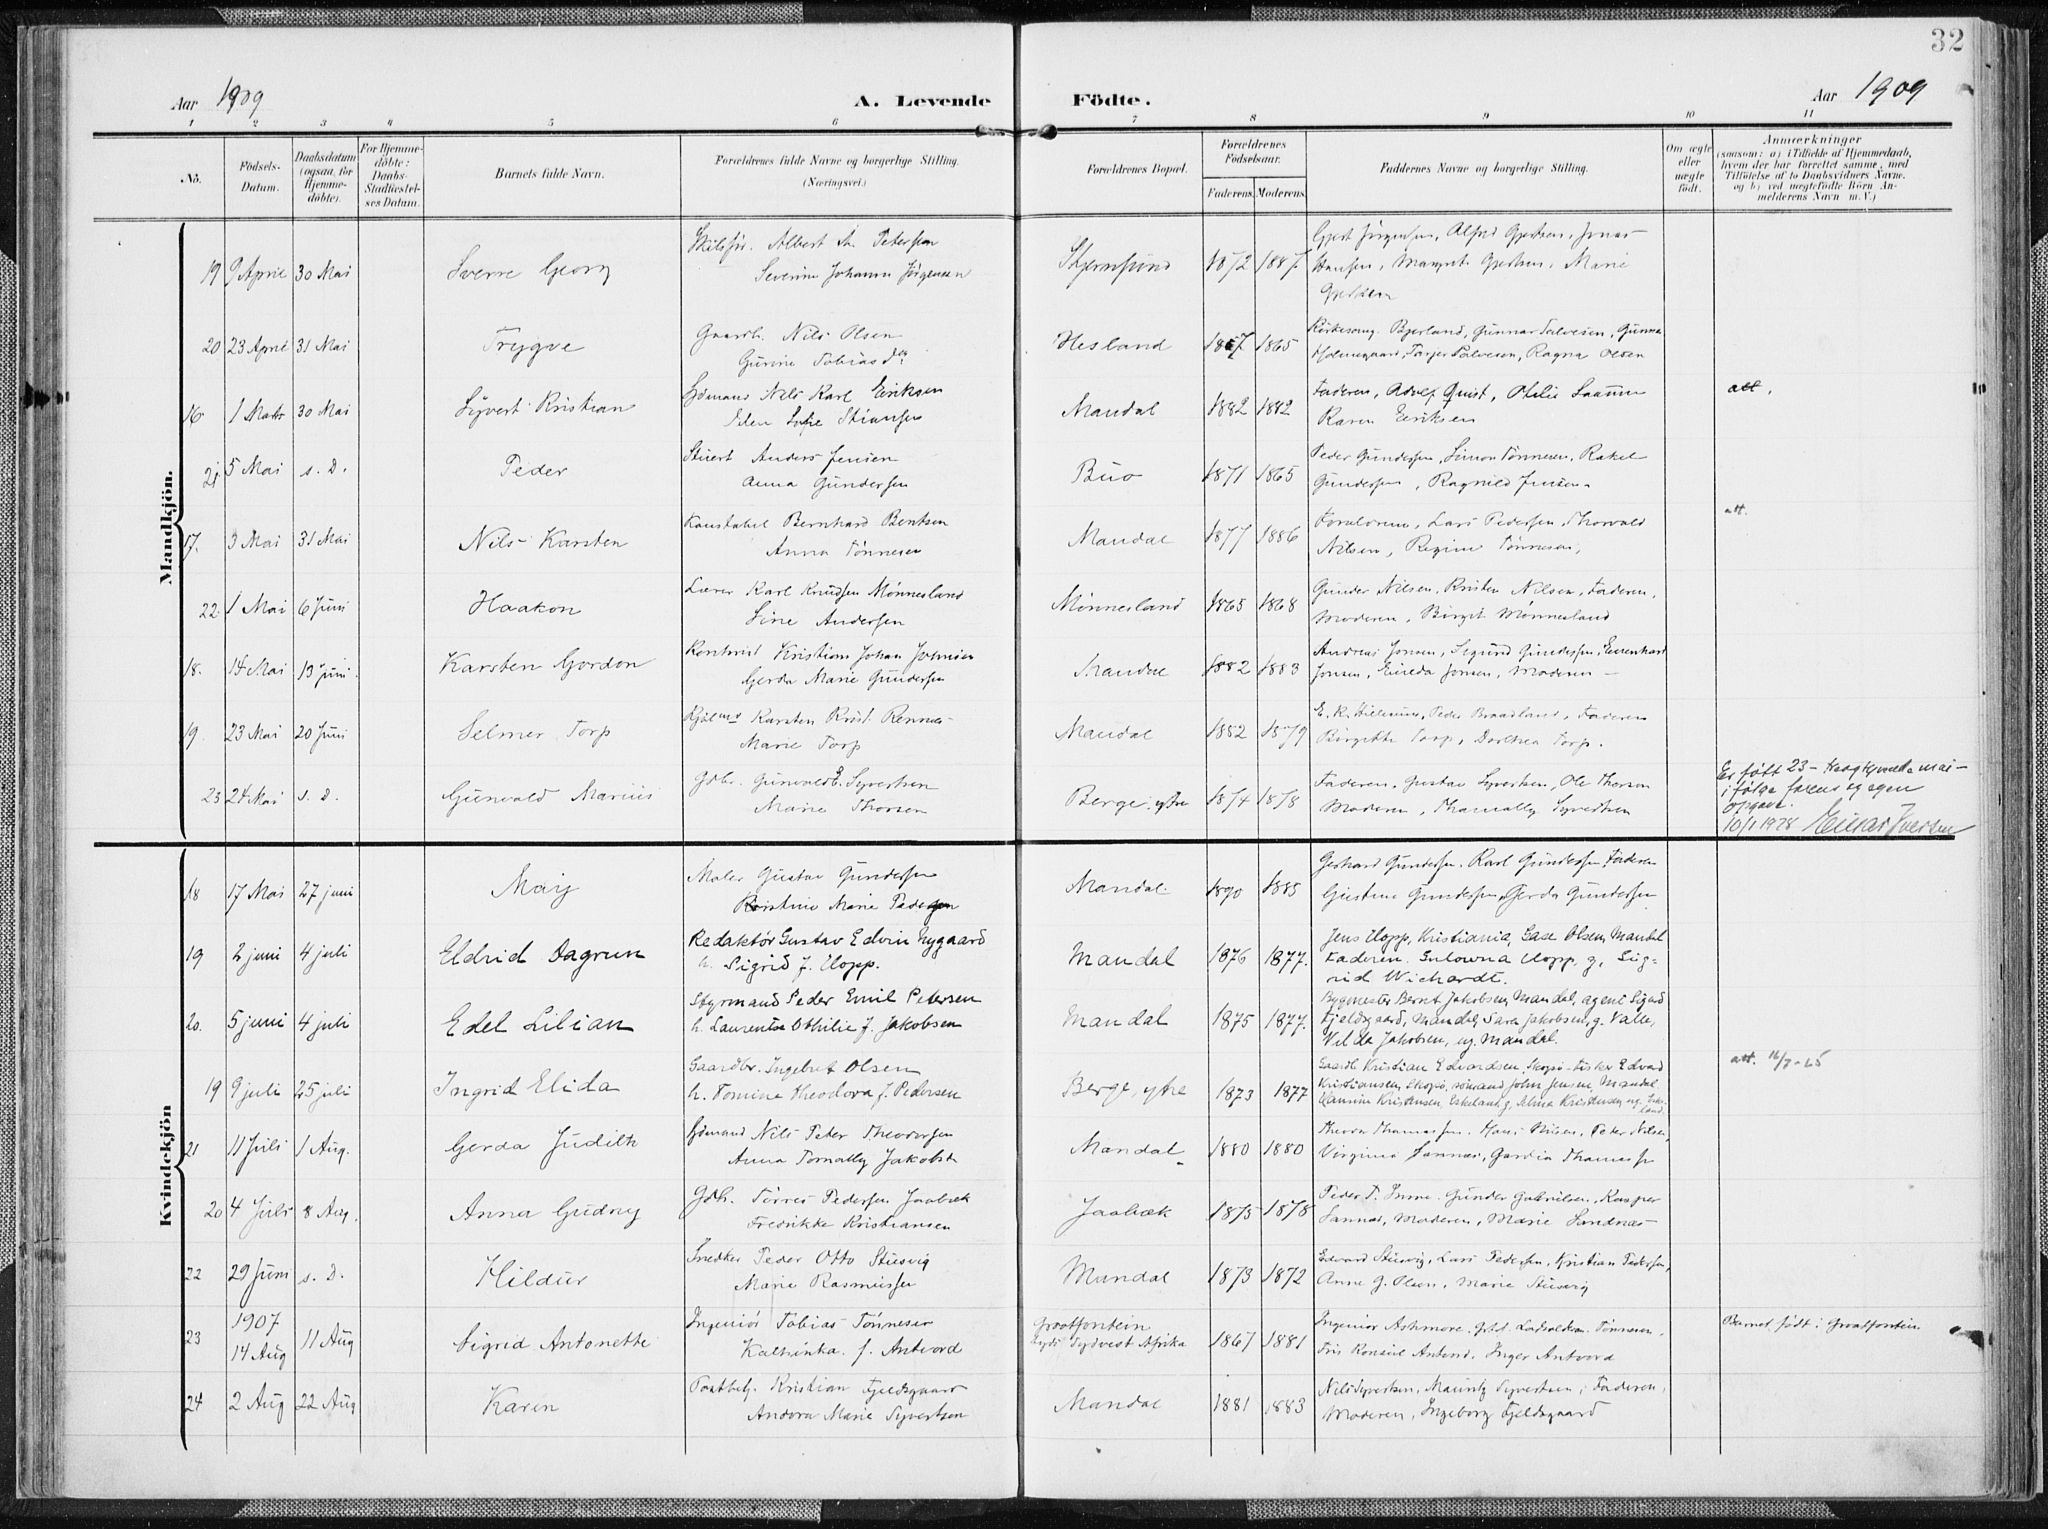 32
Aar 1909
A. Levende
Födte.
Aar 1909
1 2 3 4 5 6 7 8 9 10 11
No.
Födsels-
Datum.
Daabsdatum
(ogsaa for
Hjemme-
döbte).
For Hjemme-
döbte:
Daabs-
Stadfæstel-
ses Datum.
Barnets fulde Navn.
Forældrenes fulde Navne og borgerlige Stilling.
(Næringsvei.)
Forældrenes Bopæl.
Forældrenes
Födselsaar.
Faderens. Moderens.
Faddernes Navne og borgerlige Stilling.
Om ægte
eller
uægte
födt.
Anmærkninger
(saasom: a) i Tilfælde af Hjemmedaab,
hvem der har forrettet samme, med
Tilföielse af to Daabsvidners Navne.
og b) ved uægtefödte Börn An-
melderens Navn m. V.)
Mandkjön.
19 9 April 30 Mai Sverre Georg Albert A. Petersen
Severine Johanne Jørgensen
Skjernsund 1872 1887 Gjert Jørgensen, Alfred Gjertsen, Jonas
Hansen, Margrete Gjertsen, Marie
Gjertsen
20 23 April 31 Mai Trygve Gaardb. Nils Olsen
Gurine Tobiasd.
Hesland 1867 1865 Kirkesang. Bjerland, Gunnar Salvesen, Gunna
Holmegaard, Tarjer Salvesen, Ragna Olsen
16 1 Marts 30 Mai Syvert Kristian Sömand Nils Karl Eriksen
Elen Sofie Stiansen
Mandal 1882 1882 Faderen, Adolf Quist, Otilie
Karen Eriksen
att.
21 5 Mai s. D. Peder Stuert Anders Jensen
Anna Gundersen
Buo 1871 1865 Peder Gundersen, Simon Tönnesen, Rakel
Gundersen, Ragnild Jensen
17. 3 Mai 31 Mai Nils Karsten Konstabel Bernhard Bentsen
Anna Tönnesen
Mandal 1877 1886 Forældrene, Lars Pedersen, Thorvald
Nilsen, Regine Tönnesen,
att.
22. 1 Mai 6 Juni Haakon Lærer Karl Knudsen Mönnesland
Sine Andersen
Mönnesland 1865 1868 Gunder Nilsen, Kristen Nilsen, Faderen,
Moderen, Birgit Mönnesland
18. 14 Mai 13 juni. Karsten Gordon Kontorist Kristian Johan Johnsen
Gerda Marie Gundersen
Mandal 1882 1883 Andreas Jonsen, Sigurd Gundersen,
Jonsen, Jonsen, Moderen
19. 23 Mai 20 Juni Selmer Torp Karsten Krist. Rennes
Marie Torp
Mandal 1852 1879 Peder Braadland, Faderen
Birgitte Torp, Dorthea Torp.
23 24 Mai s. D. Gunvald Marius Gdbr. Gunvald E. Syvertsen
Marie Thorsen
Berge, ytre 1874 1878 Faderen, Gustav Syvertsen, Ole Thorsen
Moderen, Thomally Syvertsen
Er født 23 - mai -
i følge farens eg egen
opgave.
10/1 1928 Einar Iversen
Kvindekjön
18 17 Mai 27 juni Maiy Maler Gustav Gundersen
Kristine Marie Pedersen
Mandal 1890 1885 Gerhard Gundersen. Karl Gundersen Faderen
Gustine Gundersen, Gerda Gundersen
19 2 juni 4 juli Eldrid Dagrun Redaktör Gustav Edvin Nygaard
h. Sigrid f. Hopp.
Mandal 1876 1877. Jens Hopp, Kristiania, Gase Olsen, Mandal
Faderen. Hopp, g. Sig-
rid Wichardt.
20. 5 juni 4 juli Edel Lilian Styrmand Peder Emil Petersen
h. Laurentse Othilie f. Jakobsen
Mandal 1875 1877. Bygmester Bernt Jakobsen, Mandal, agent Sigurd
Fjeldsgaard, Mandal, Sara Jakobsen, g. Valle,
Vilda Jakobsen, ug. Mandal.
19 9 juli 25 juli Ingrid Elida Gaardbr. Ingebret Olsen
h. Tomine Theodora f. Pedersen
Berge, ytre 1873 1877 Gaardb. Kristian Edvardsen, Skogsö - fisker Edvard
Kristiansen, Skogsö, sömand John Jensen, Mandal
Hansine Kristensen, Eskeland, g. Alma Kristensen ug. Eske-
land.
att. 16/7-25
21 11 Juli 1 Aug. Gerda Judith Sömand Nils Peter Theodorsen
Anna Tomally Jakobs.
Mandal 1880 1880 Theodor Thomassen. Hans Nilsen, Peter Nilsen,
Virginia Sannes, Gardia Thomass.
20 4 Juli 8 Aug. Anna Gudny Gdb. Törres Pedersen Jaabæk
Fredrikke Kristiansen
Jaabæk 1875 1878 Peder T. Imme. Gunder Gabrielsen, Kasper
Sannes, Moderen, Marie Sandnæs
22 29 Juni s. D. Hildur Snedker Peder Otto Stusvig
Marie Rasmussen
Mandal 1873 1872 Edvard Stusvig, Lars Pedersen, Kristian Pedersen,
Anne G. Olsen, Marie Stusvig
23 1907
14 Aug 11 Aug Sigrid Antonette Ingeniör Tobias Tönnesen
Kathinka f. Antvord
Grootfontein
Tydsk Sydvest Afrika 1867 1881 Ingeniör Ashmore, Tönnesen,
Frk Konsul Antvord, Inger Antvord
Barnet født i Grootfontein
24 2 Aug 22 Aug Karen Postbetj. Kristian Fjeldsgaard
Andora Marie Syvertsen
Mandal 1881 1883 Nils Syvertsen, Mauritz Syvertsen, Faderen,
Moderen, Ingeborg Fjeldsgaard